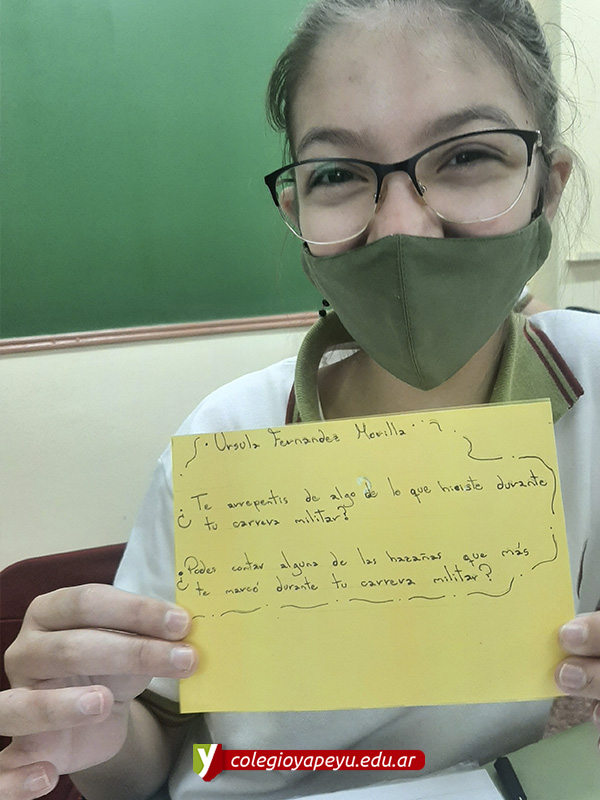 Ursula Fernandez Morilla
¿Te arrepentis de algo de lo que hiciste durante
tu carrera militar?
¿Podes contar alguna de las hazañas que más
te marcó durante tu carrera militar?
y colegioyapeyu.edu.ar